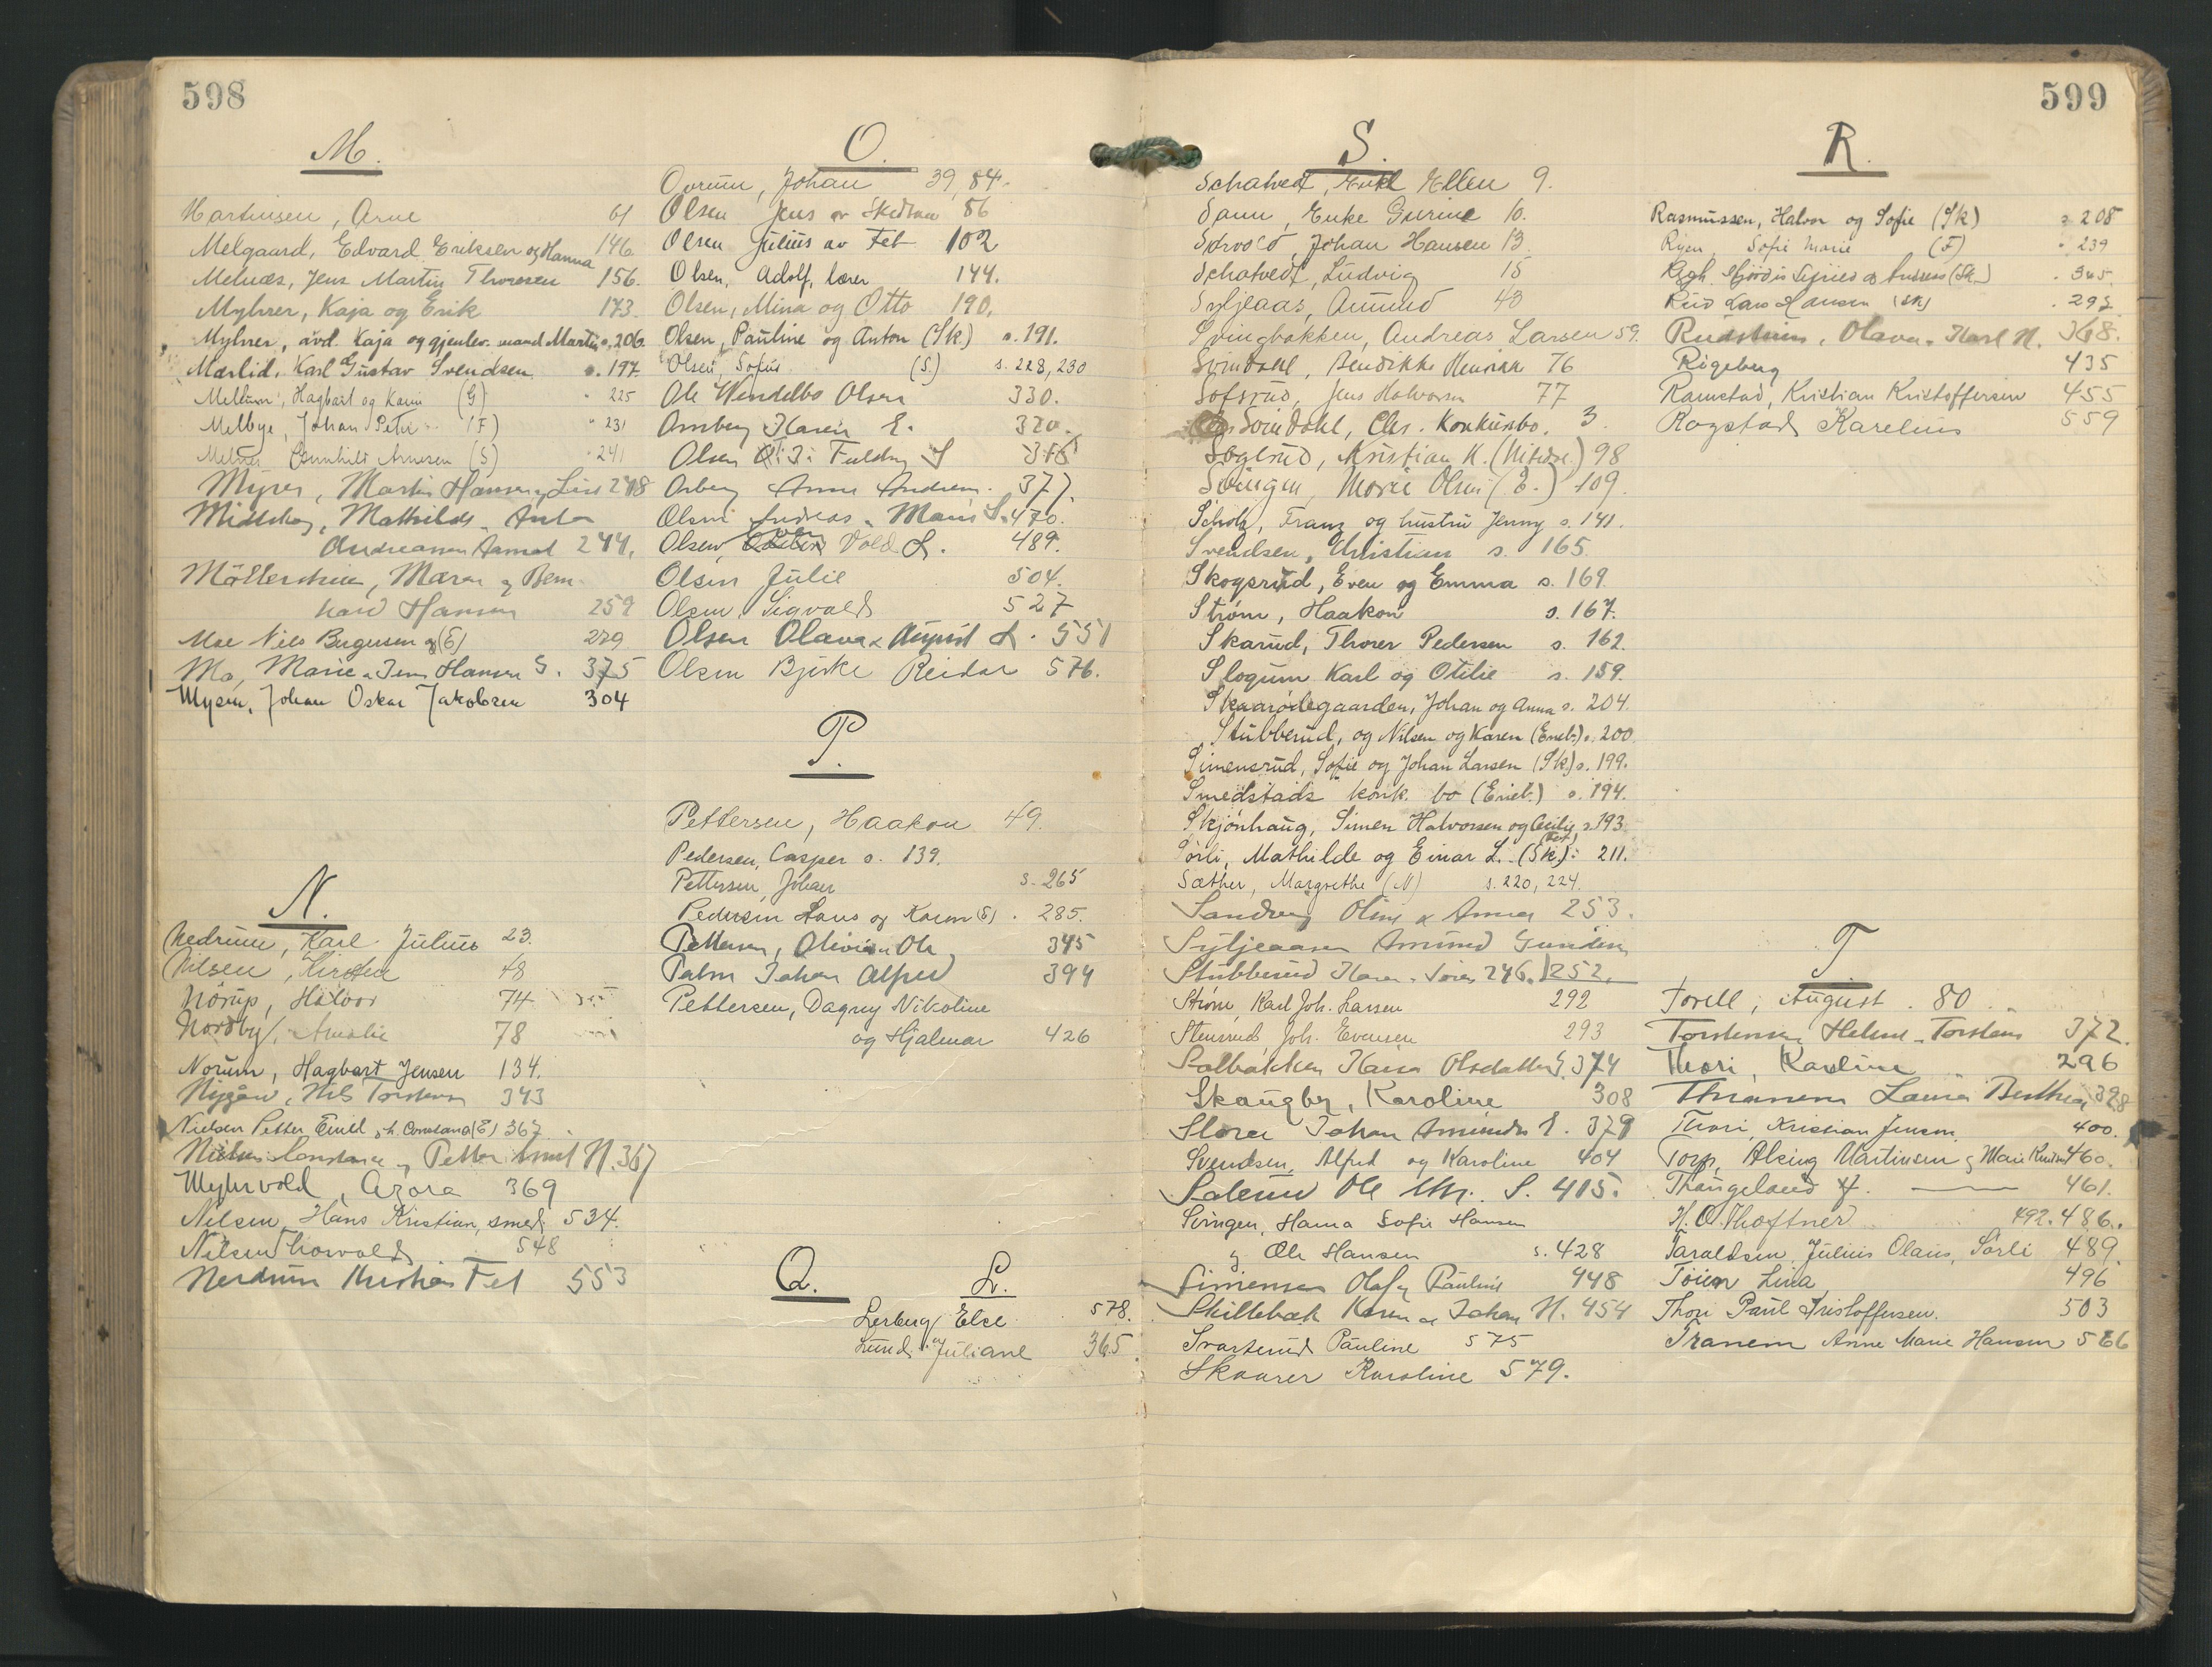 598
M.
Martinsen, Arne 61
Melgaard, Edvard Eriksen og Hanna 146
Melnæs, Jens Martin Thoresen 156.
Myhrer, Kaja og Erik 173.
Myhrer, avd. Kaja og gjenlev. mand Martin s. 206.
Mærlid, Karl Gustav Svendsen s. 197
Mellum, Hagbart og Karin (G) " 225
Melbye, Johan Petter (F) " 231
Melnes Gunhild Arnesen (S) " 241
Myrer, Martin Hansen og Lise 248
Midtskog, Mathilde Anton
Andreassen 244.
Möllerstuen, Maren og Bern
hard Hansen 259
Moe Nils Bergersen og (E) 279
Mo, Marie Jens Hansen S. 375
Mysen, Johan Oskar Jakobsen 304
N.
Nedrum, Karl Julius 23.
Nilsen, Kirsten 48
Nörup, Halvor 74
Nordby, Amalie 78
Norum, Hagbart Jensen 134.
Nygård, Nils Torstensen 343
Nielsen Petter Emil h. Constance (E) 367
Nielsen Constance og Petter Emil N. 367
Myhrvold, Azora 369
Nilsen, Hans Kristian, smed 534.
Nilsen Thorvald 548
Nerdrum Kristian Fet 553
O.
Ovrum, Johan 39, 84.
Olsen Jens av Skedsmo 86
Olsen Julius av Fet 102
Olsen, Adolf, lærer 144.
Olsen, Mina og Otto 190.
Olsen, Pauline og Anton (Sk.) s. 191.
Olsen, Sofus (S.) s. 228, 230
Ole Wendelbo Olsen 330.
Omberg Karen E. 320.
Olsen Fuldby S
Osberg Anne Andrea 377.
Olsen Andreas Marie S. 470.
Olsen, Vold S. 489.
Olsen Julie 504.
Olsen Sigvald 527
Olsen Olava & August S. 551
Olsen Bjerke Reidar 576.
P.
Pettersen, Haakon 49.
Pedersen, Casper s. 139.
Pettersen, Johan s. 265
Pedersen Hans og Karen (S) . 285.
Pettersen, Olivia Ole 345
Palm Johan Alfred 394
Pettersen, Dagny Nikoline
og Hjalmar 426
Q.
L.
Lerberg Else 578.
Lund Juliane 365.
599
S.
Schatvedt, Ellen 9.
Sann, Enke Gurine 10.
Sørvold, Johan Hansen 13.
Schatvedt, Ludvig 15
Syljeaas, Amund 40
Svingbakken, Andreas Larsen 59.
Svindahl, Bendikke Henrik 76
Sofsrud, Jens Halvorsen 77
Svindahl, Chr. Konkursbo. 3
Søgerud, Kristian K. (Nitedal.) 98
Svingen, Marie Olsen (E.) 109.
Scholz, Franz og hustru Jenny s. 141.
Svendsen, Christian s. 165.
Skogsrud, Even og Emma s. 169
Strøm, Haakon s. 167.
Skarud, Thorer Pedersen s. 162.
Slogum Karl og Otilie s. 159.
Skaarødegaarden, Johan og Anna s. 204.
Stubberud, og Nilsen og Karen (Eneb.) s. 200
Simensrud, Sofie og Johan Larsen (Sk) s. 199.
Smedstads konk. bo (Eneb.) s. 194.
Skjönhaug, Simen Halvorsen og Cecilie s. 193
Sörli, Mathilde og Einar L. (Sk.) s. 211.
Sæther, Margrethe (N) s. 220, 224.
Sandvig Oline & Anna 253.
Syljeaasen Amund Gundersen
Stubberud Karen Sören 246. 252.
Strøm, Karl Joh. Larsen 292
Stensrud, Joh. Evensen 293
Solbakken Karen Olsdatter S. 374
Skaugby, Karoline 308
Slorer Johan Amundsen S. 379
Svendsen, Alfred og Karoline 404
Solerud Ole Chr. S. 415.
Svingen, Hanna Sofie Hansen
og Ole Hansen s. 428
Simensen Olaf og Pauline 448
Skillebæk Karen og Johan N. 454
Svarterud Pauline 575
Skaarer Karoline 579.
R.
Rasmussen, Halvor og Sofie (Sk) s 208
Ryen, Sofie Marie (F) " 239
Hjördis Sigfried og (Sk) . 345.
Rud Lars Hansen (Sk) . 295
Rudstuen, Olava Karl N. 368.
Rigeberg 435
Ramstad, Kristian Kristoffersen 455
Rogstad Karelius 559
T
Torell, August . 80
Torstensen Helene Torstein 372.
Thori, Karoline 296
Thranem Laura Berthea 328
Thori Kristian Jensen 400.
Torp, Alsing Martinsen og Marie Knutsen 460.
Thaugeland H. 461.
H. O. Thoftner 492. 486.
Taraldsen, Julius Olaus, Sörli 489
Töien Lina 496
Thori Paul Kristoffersen. 503
Tranem Anne Marie Hansen 566